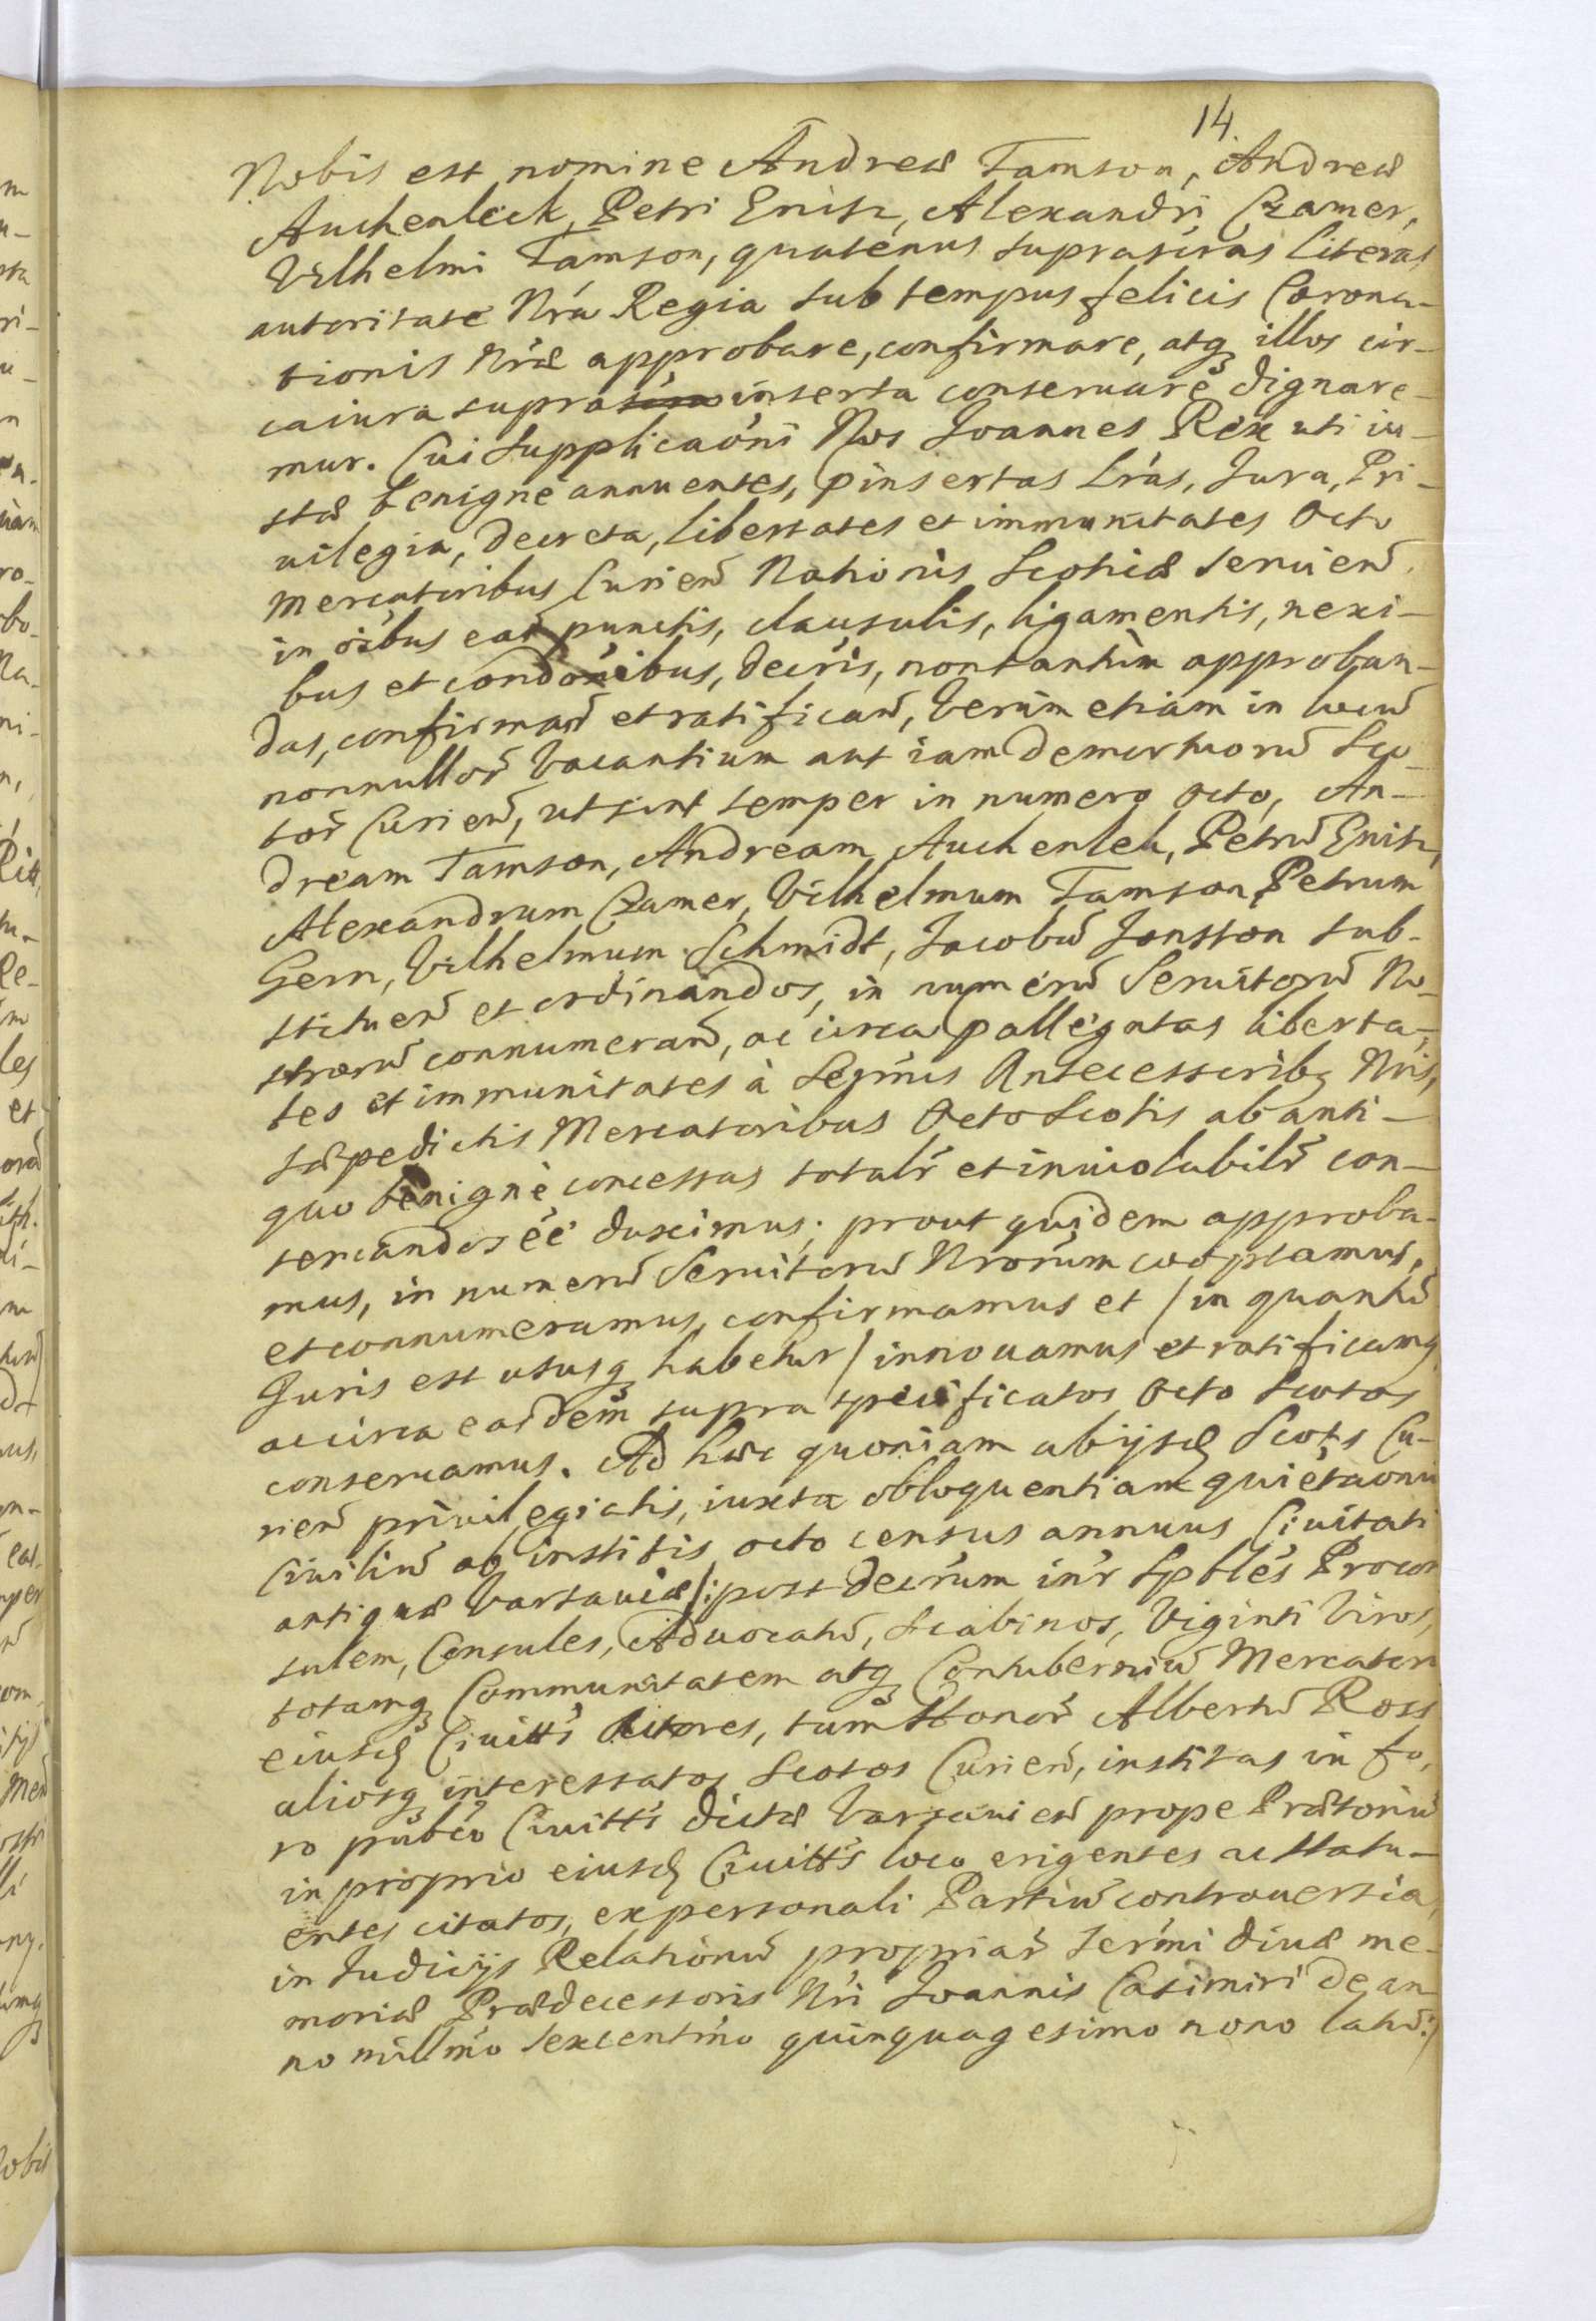 14.
Nobis est nomine Andreæ Tamson, Andreæ
Auchenleck, Petri Enish, Alexandri Czamer,
Vilhelmi Tamson, quatenus suprascras Literas
autoritate Nrá Regia sub tempus felicis Corona-
tionis Nræ approbare, confirmare, atq illos cir-
ca iura supra inserta conseruare dignare-
mur. Cui supplicaoni Nos Joannes Rex uti iu-
stæ benigne annuentes, pinsertas Lras, Jura, Pri-
uilegia, decreta, libertates et immunitates Octo
Mercatoribus Curien Nationis Scotiæ seruien
in oibus ear punctis, clausulis, ligamentis, nexi-
bus et condonibus, decris, non tantùm approban-
das, confirman et ratifican, Verùm etiam in locu
nonnullor Vacantium aut iam demortuoru Sco-
tor Curien, ut sint semper in numero octo, An-
dream Tamson, Andream Auchenlek, Petru Enish,
Alexandrum Czamer, Vilhelmum Tamson, Petrum
Gern, Vilhelmum Schmidt, Jacobu Jonston sub-
stituen et ordinandos, in numeru Seruitoru No-
stroru connumeran, ac circa pallegatas liberta-
tes et immunitates à Sermis Antecessorib9 Nris,
sæpedictis Mercatoribus Octo Scotis ab anti-
quo benignè concessas totalr et inuiolabilr con-
seruandos eé duximus; prout quidem approba-
mus, in numeru Seruitoru Nrorum cooptamus,
et connumeramus, confirmamus et / in quantu
Juris est ususq habetur / innouamus et ratificamg
ac circa easdem supra specificatos Octo Scotos
conseruamus. Ad hæc quoniam ab ijsd Scotis Cu-
rien priuilegiatis, iuxta obloquentiam quietaonu
Ciuiliu ab institis octo census annuus Ciuitati
antiquæ Varsauiæ /: post decrum inr Spbles Procon
sulem, Consules, Aduocatu, Scabinos, Viginti Viros,
totamq Communitatem atq Contuberniu Mercator
eiusd Ciuitts Actores, tum Honor Albertu Ross
aliosq interessatos Scotos Curien, institas in fo,
ro publco Ciuitts dictæ Varsauien prope Prætoriu
in proprio eiusd Ciuitts loco erigentes ac statu-
entes citatos, ex personali Partiu controuersia,
in Iudicijs Relationu propriar Sermi diuæ me-
moriæ Prædecessoris Nri Joannis Casimiri de an
no millmo sexcentmo quinquagesimo nono latu:/